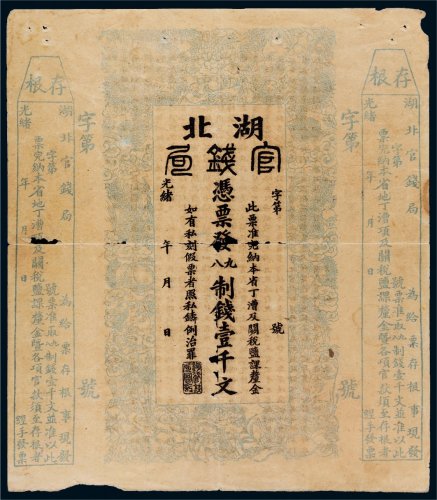 湖北
官錢局
字第 號
此票准完納本省丁漕及關稅鹽課釐金
憑票發九八制錢壹千文
如有私刻假票者照私鑄例治罪
光緒 年 月 日
存根
湖北官錢局 為給票存根事現發
字第 號票准取九八制錢壹千文並准以此
票完納本省地丁漕項及關稅鹽課釐金暨各項官款須至存根者
光緒 年 月 日 經手發票
字第 號
存根
湖北官錢局 為給票存根事現發
字第 號票准取九八制錢壹千文並准以此
票完納本省地丁漕項及關稅鹽課釐金暨各項官款須至存根者
光緒 年 月 日 經手發票
字第 號